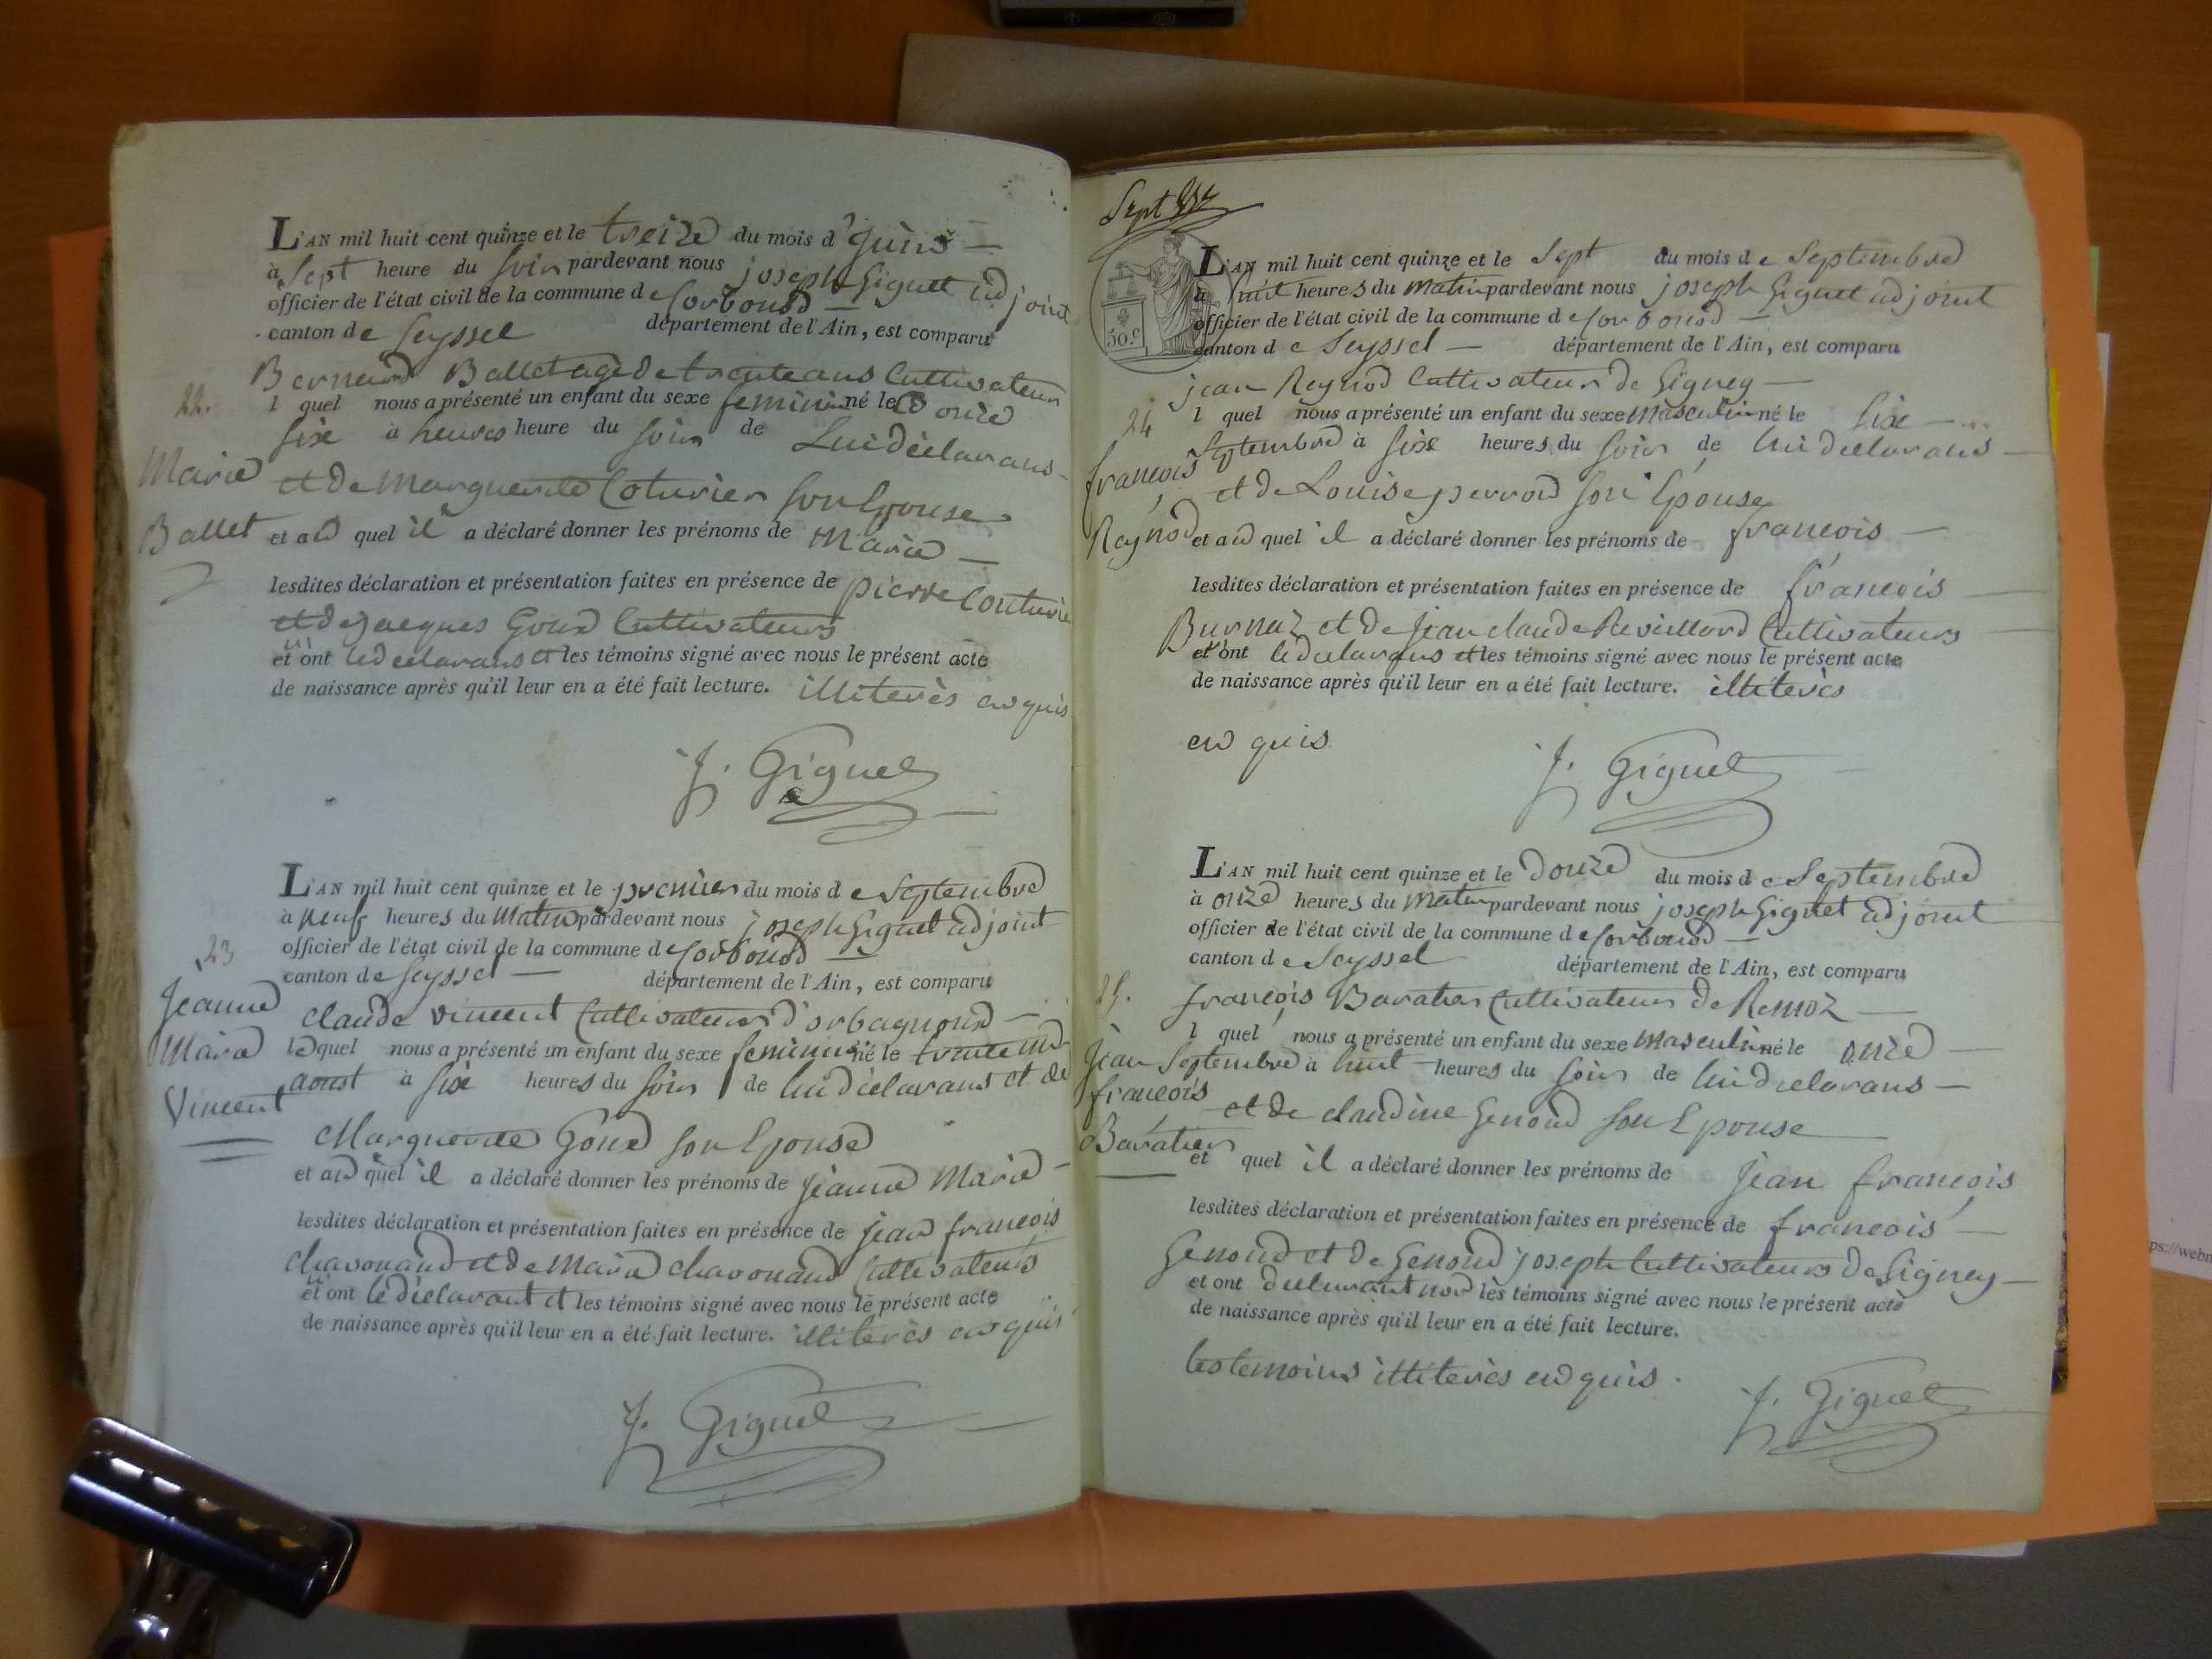 L'AN mil huit cent quinze et le treize du mois d' Juin
à Sept heure du Soir pardevant nous joseph Giguet adjoint
officier de l'état civil de la commune de Corbonod
canton de Seyssel département de l'Ain, est comparu
Bernard Ballet agé de trente ans Cultivateur
22. l quel nous a présenté un enfant du sexe feminin né le onze
Six à heures heure du Soir de Lui déclarans
Marie et de marguerite Coturier Son Epouse
Ballet et au quel il a déclaré donner les prénoms de Marie
lesdites déclaration et présentation faites en présence de pierre Couturie
et de jacques Goux Cultivateurs
et n'ont le declarans et les témoins signé avec nous le présent acte
de naissance après qu'il leur en a été fait lecture. illiterès enquis
J. Giguet
L'AN mil huit cent quinze et le premier du mois de Septembre
à neuf heures du Matin pardevant nous joseph Giguet adjoint
officier de l'état civil de la commune de Corbonod
23 canton de Seyssel département de l'Ain, est comparu
Jeanne claude vincent Cultivateur d'orbagnoud
Marie lequel nous a présenté un enfant du sexe feminin né le trente un
aoust à Six heures du Soir de lui déclarant et de
Vincent
Marguerite Goux Son Epouse
et au quel il a déclaré donner les prénoms de Jeanne Marie
lesdites déclaration et présentation faites en présence de jean françois
chavonand et de Marie chavonand Cultivateurs
et n'ont le déclarant et les témoins signé avec nous le présent acte
de naissance après qu'il leur en a été fait lecture. illiterès enquis
J. Giguet
Sept
L'AN mil huit cent quinze et le Sept du mois de Septembre
à huit heures du Matin pardevant nous joseph Giguet adjoint
officier de l'état civil de la commune de Corbonod
50.c canton de Seyssel département de l'Ain, est comparu
jean Reynod Cultivateur de Gigney
24 l quel nous a présenté un enfant du sexe masculin né le Six
Septembre à Six heures du Soir de lui declarans
françois et de Louise perrod Son Epouse
Reynod et au quel il a déclaré donner les prénoms de françois
lesdites déclaration et présentation faites en présence de françois
Burnaz et de jean claude Revillard Cultivateurs
et n'ont le declarans et les témoins signé avec nous le présent acte
de naissance après qu'il leur en a été fait lecture. illiterès
enquis
J. Giguet
L'AN mil huit cent quinze et le Douze du mois de Septembre
à onze heures du Matin pardevant nous joseph Giguet adjoint
officier de l'état civil de la commune de Corbonod
canton de Seyssel département de l'Ain, est comparu
25. françois Baratier Cultivateur de Remoz
l quel nous a présenté un enfant du sexe masculin né le onze
Jean Septembre à huit heures du Soir de lui declarans
françois et de claudine Genoud Son Epouse
Baratier et quel il a déclaré donner les prénoms de Jean françois
lesdites déclaration et présentation faites en présence de françois
Genoud et de Genoud joseph Cultivateurs de Gigney
et ont declarant non les témoins signé avec nous le présent acte
de naissance après qu'il leur en a été fait lecture.
les temoins illiterès enquis.
J. Giguet
ps://webm